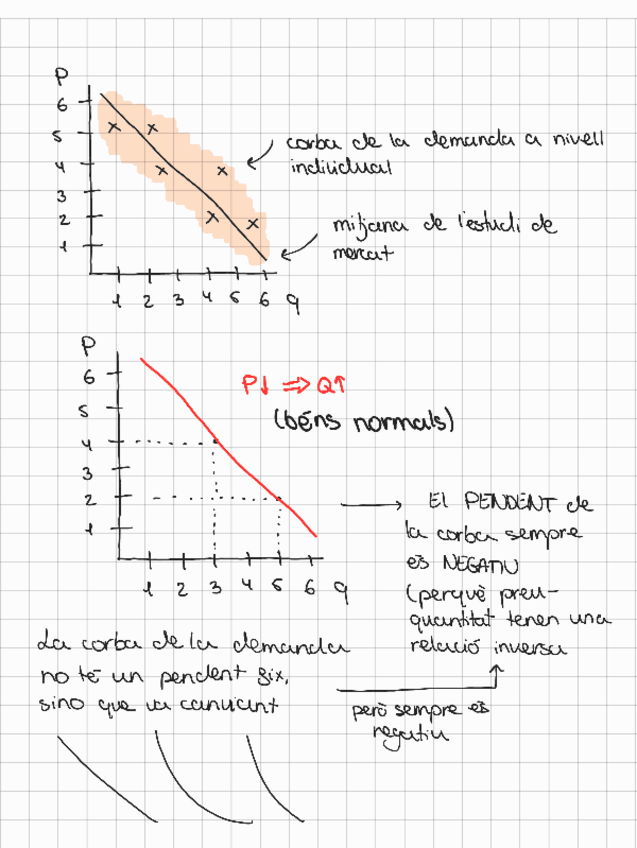 P
6
5
4
3
2
1
1 2 3 4 5 6 q
corba de la demanda a nivell
individual
mitjana de l'estudi de
mercat
P
6
5
4
3
2
1
1 2 3 4 5 6 q
P↓ ⇒ Q↑
(béns normals)
El PENDENT de
la corba sempre
és NEGATIU
(perquè preu-
quantitat tenen una
relació inversa
La corba de la demanda
no té un pendent fix,
sino que va canviant
però sempre és
negatiu